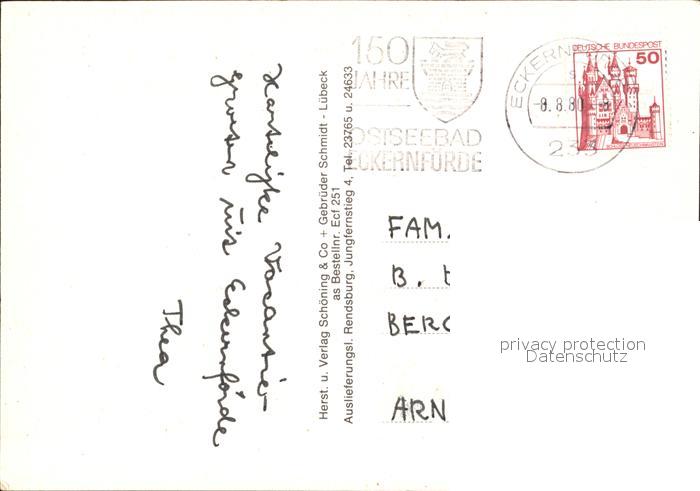 Hartelijke Vacantie-
groeten uit Eckernförde
Thea
Herst. u. Verlag Schöning & Co + Gebrüder Schmidt - Lübeck
as Bestellnr. Ecf 251
Auslieferungsl. Rendsburg, Jungfernstieg 4, Tel. 23765 u. 24633
150
JAHRE
OSTSEEBAD
ECKERNFÖRDE
ECKERN
-8.8.80
233
DEUTSCHE BUNDESPOST
50
FAM.
B.
BERG
ARN
privacy protection
Datenschutz